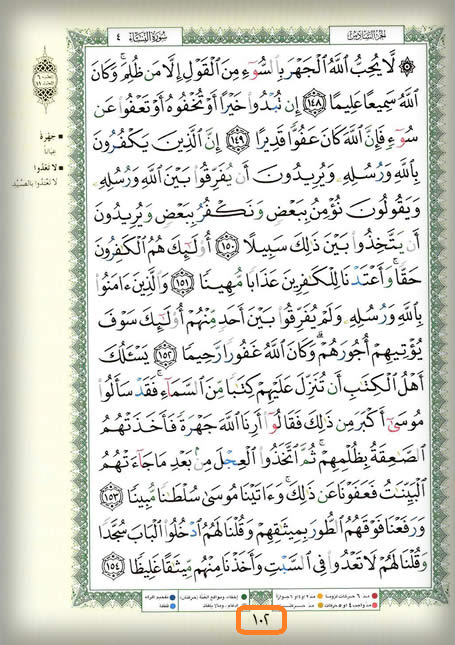 الجزء السادس
سورة النساء ٤
۞ لَّا يُحِبُّ ٱللَّهُ ٱلْجَهْرَ بِٱلسُّوٓءِ مِنَ ٱلْقَوْلِ إِلَّا مَن ظُلِمَ ۚ وَكَانَ
ٱللَّهُ سَمِيعًا عَلِيمًا ١٤٨ إِن تُبْدُوا۟ خَيْرًا أَوْ تُخْفُوهُ أَوْ تَعْفُوا۟ عَن
سُوٓءٍ فَإِنَّ ٱللَّهَ كَانَ عَفُوًّا قَدِيرًا ١٤٩ إِنَّ ٱلَّذِينَ يَكْفُرُونَ
بِٱللَّهِ وَرُسُلِهِۦ وَيُرِيدُونَ أَن يُفَرِّقُوا۟ بَيْنَ ٱللَّهِ وَرُسُلِهِۦ
وَيَقُولُونَ نُؤْمِنُ بِبَعْضٍ وَنَكْفُرُ بِبَعْضٍ وَيُرِيدُونَ
أَن يَتَّخِذُوا۟ بَيْنَ ذَٰلِكَ سَبِيلًا ١٥٠ أُو۟لَٰٓئِكَ هُمُ ٱلْكَٰفِرُونَ
حَقًّا ۚ وَأَعْتَدْنَا لِلْكَٰفِرِينَ عَذَابًا مُّهِينًا ١٥١ وَٱلَّذِينَ ءَامَنُوا۟
بِٱللَّهِ وَرُسُلِهِۦ وَلَمْ يُفَرِّقُوا۟ بَيْنَ أَحَدٍ مِّنْهُمْ أُو۟لَٰٓئِكَ سَوْفَ
يُؤْتِيهِمْ أُجُورَهُمْ ۗ وَكَانَ ٱللَّهُ غَفُورًا رَّحِيمًا ١٥٢ يَسْـَٔلُكَ
أَهْلُ ٱلْكِتَٰبِ أَن تُنَزِّلَ عَلَيْهِمْ كِتَٰبًا مِّنَ ٱلسَّمَآءِ ۚ فَقَدْ سَأَلُوا۟
مُوسَىٰٓ أَكْبَرَ مِن ذَٰلِكَ فَقَالُوٓا۟ أَرِنَا ٱللَّهَ جَهْرَةً فَأَخَذَتْهُمُ
ٱلصَّٰعِقَةُ بِظُلْمِهِمْ ۚ ثُمَّ ٱتَّخَذُوا۟ ٱلْعِجْلَ مِنۢ بَعْدِ مَا جَآءَتْهُمُ
ٱلْبَيِّنَٰتُ فَعَفَوْنَا عَن ذَٰلِكَ ۚ وَءَاتَيْنَا مُوسَىٰ سُلْطَٰنًا مُّبِينًا ١٥٣
وَرَفَعْنَا فَوْقَهُمُ ٱلطُّورَ بِمِيثَٰقِهِمْ وَقُلْنَا لَهُمُ ٱدْخُلُوا۟ ٱلْبَابَ سُجَّدًا
وَقُلْنَا لَهُمْ لَا تَعْدُوا۟ فِى ٱلسَّبْتِ وَأَخَذْنَا مِنْهُم مِّيثَٰقًا غَلِيظًا ١٥٤
جهرة
عيانا
لا تعدوا
لا تعتدوا بالصيد
مد ٦ حركات لزوما
مد ٢ او ٤ او ٦ جوازا
إخفاء، ومواقع الغنة (حركتان)
تفخيم الراء
مد واجب ٤ او ٥ حركات
مد حركتان
إدغام، وما لا يلفظ
قلقلة
١٠٢